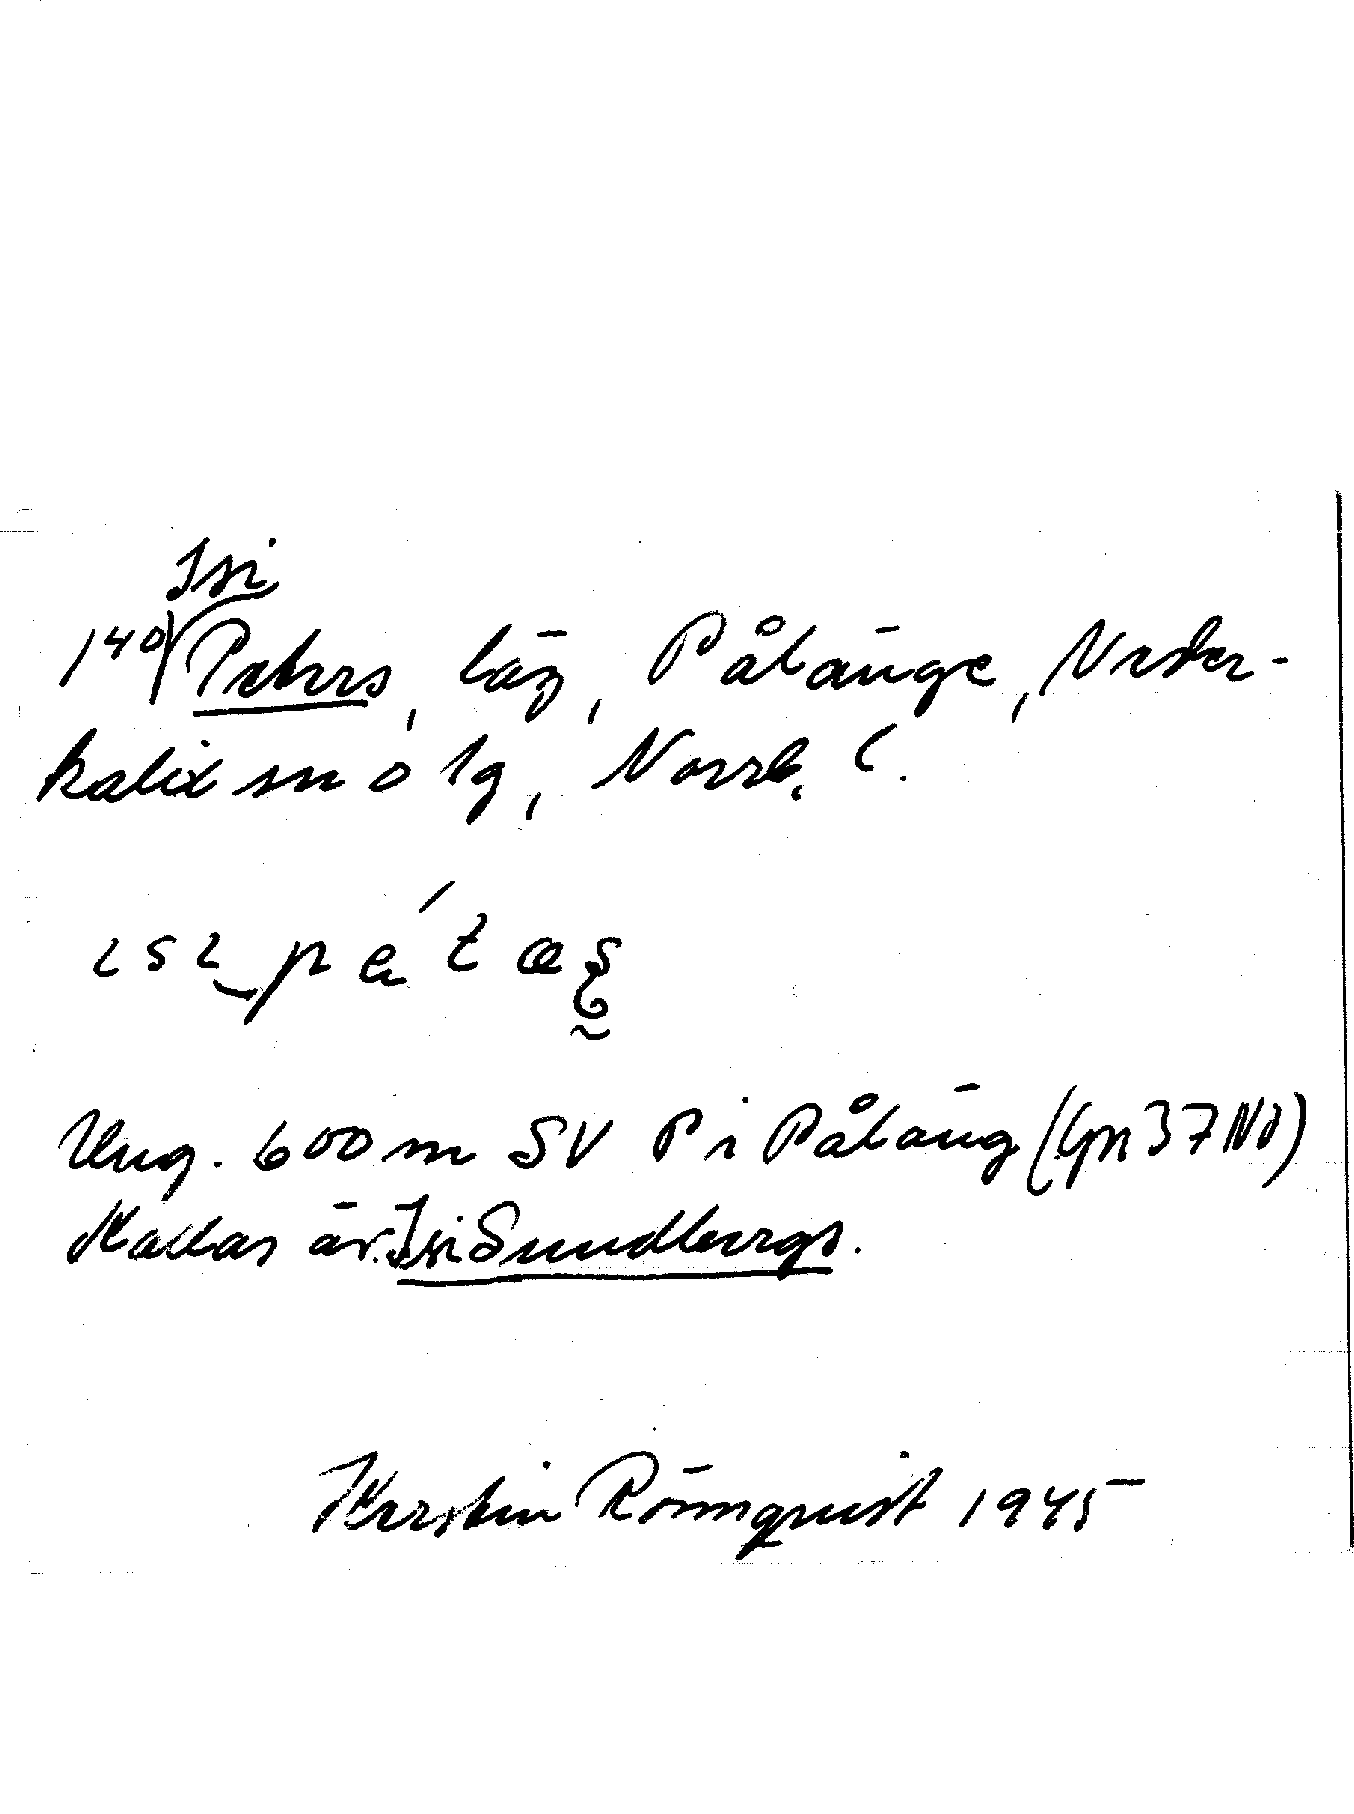 Isi
140) Peters, läg, Pålänge, Neder-
kalix sn o lg, Norrb. l.
Ung. 600 m SV P i Påläng (Gpn 37 NO)
Kallas äv. Isi Sundbergs.
Kerstin Rönnqvist 1945